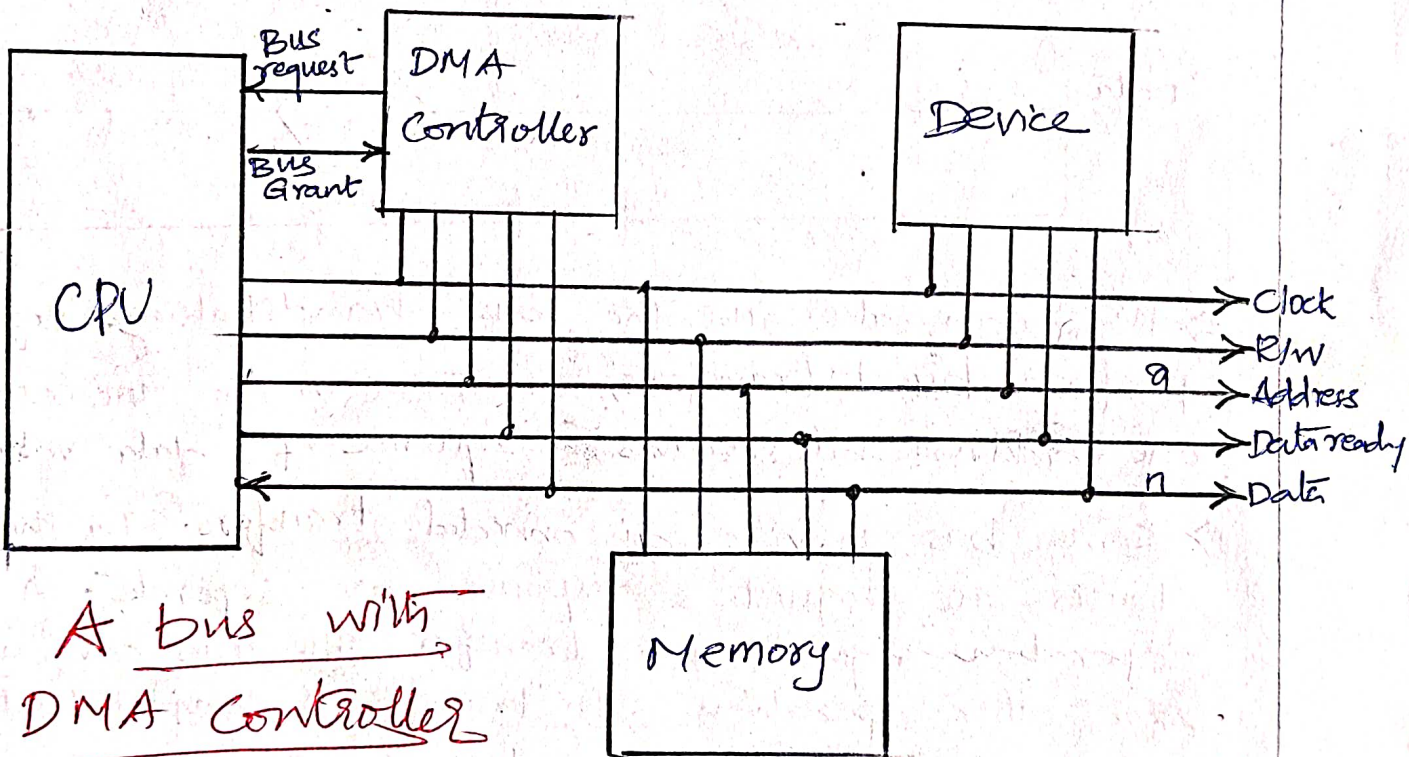 Bus
request
DMA
Controller
Device
Bus
Grant
CPU
Clock
R/W
a
Address
Data ready
n
Data
Memory
A bus with
DMA Controller